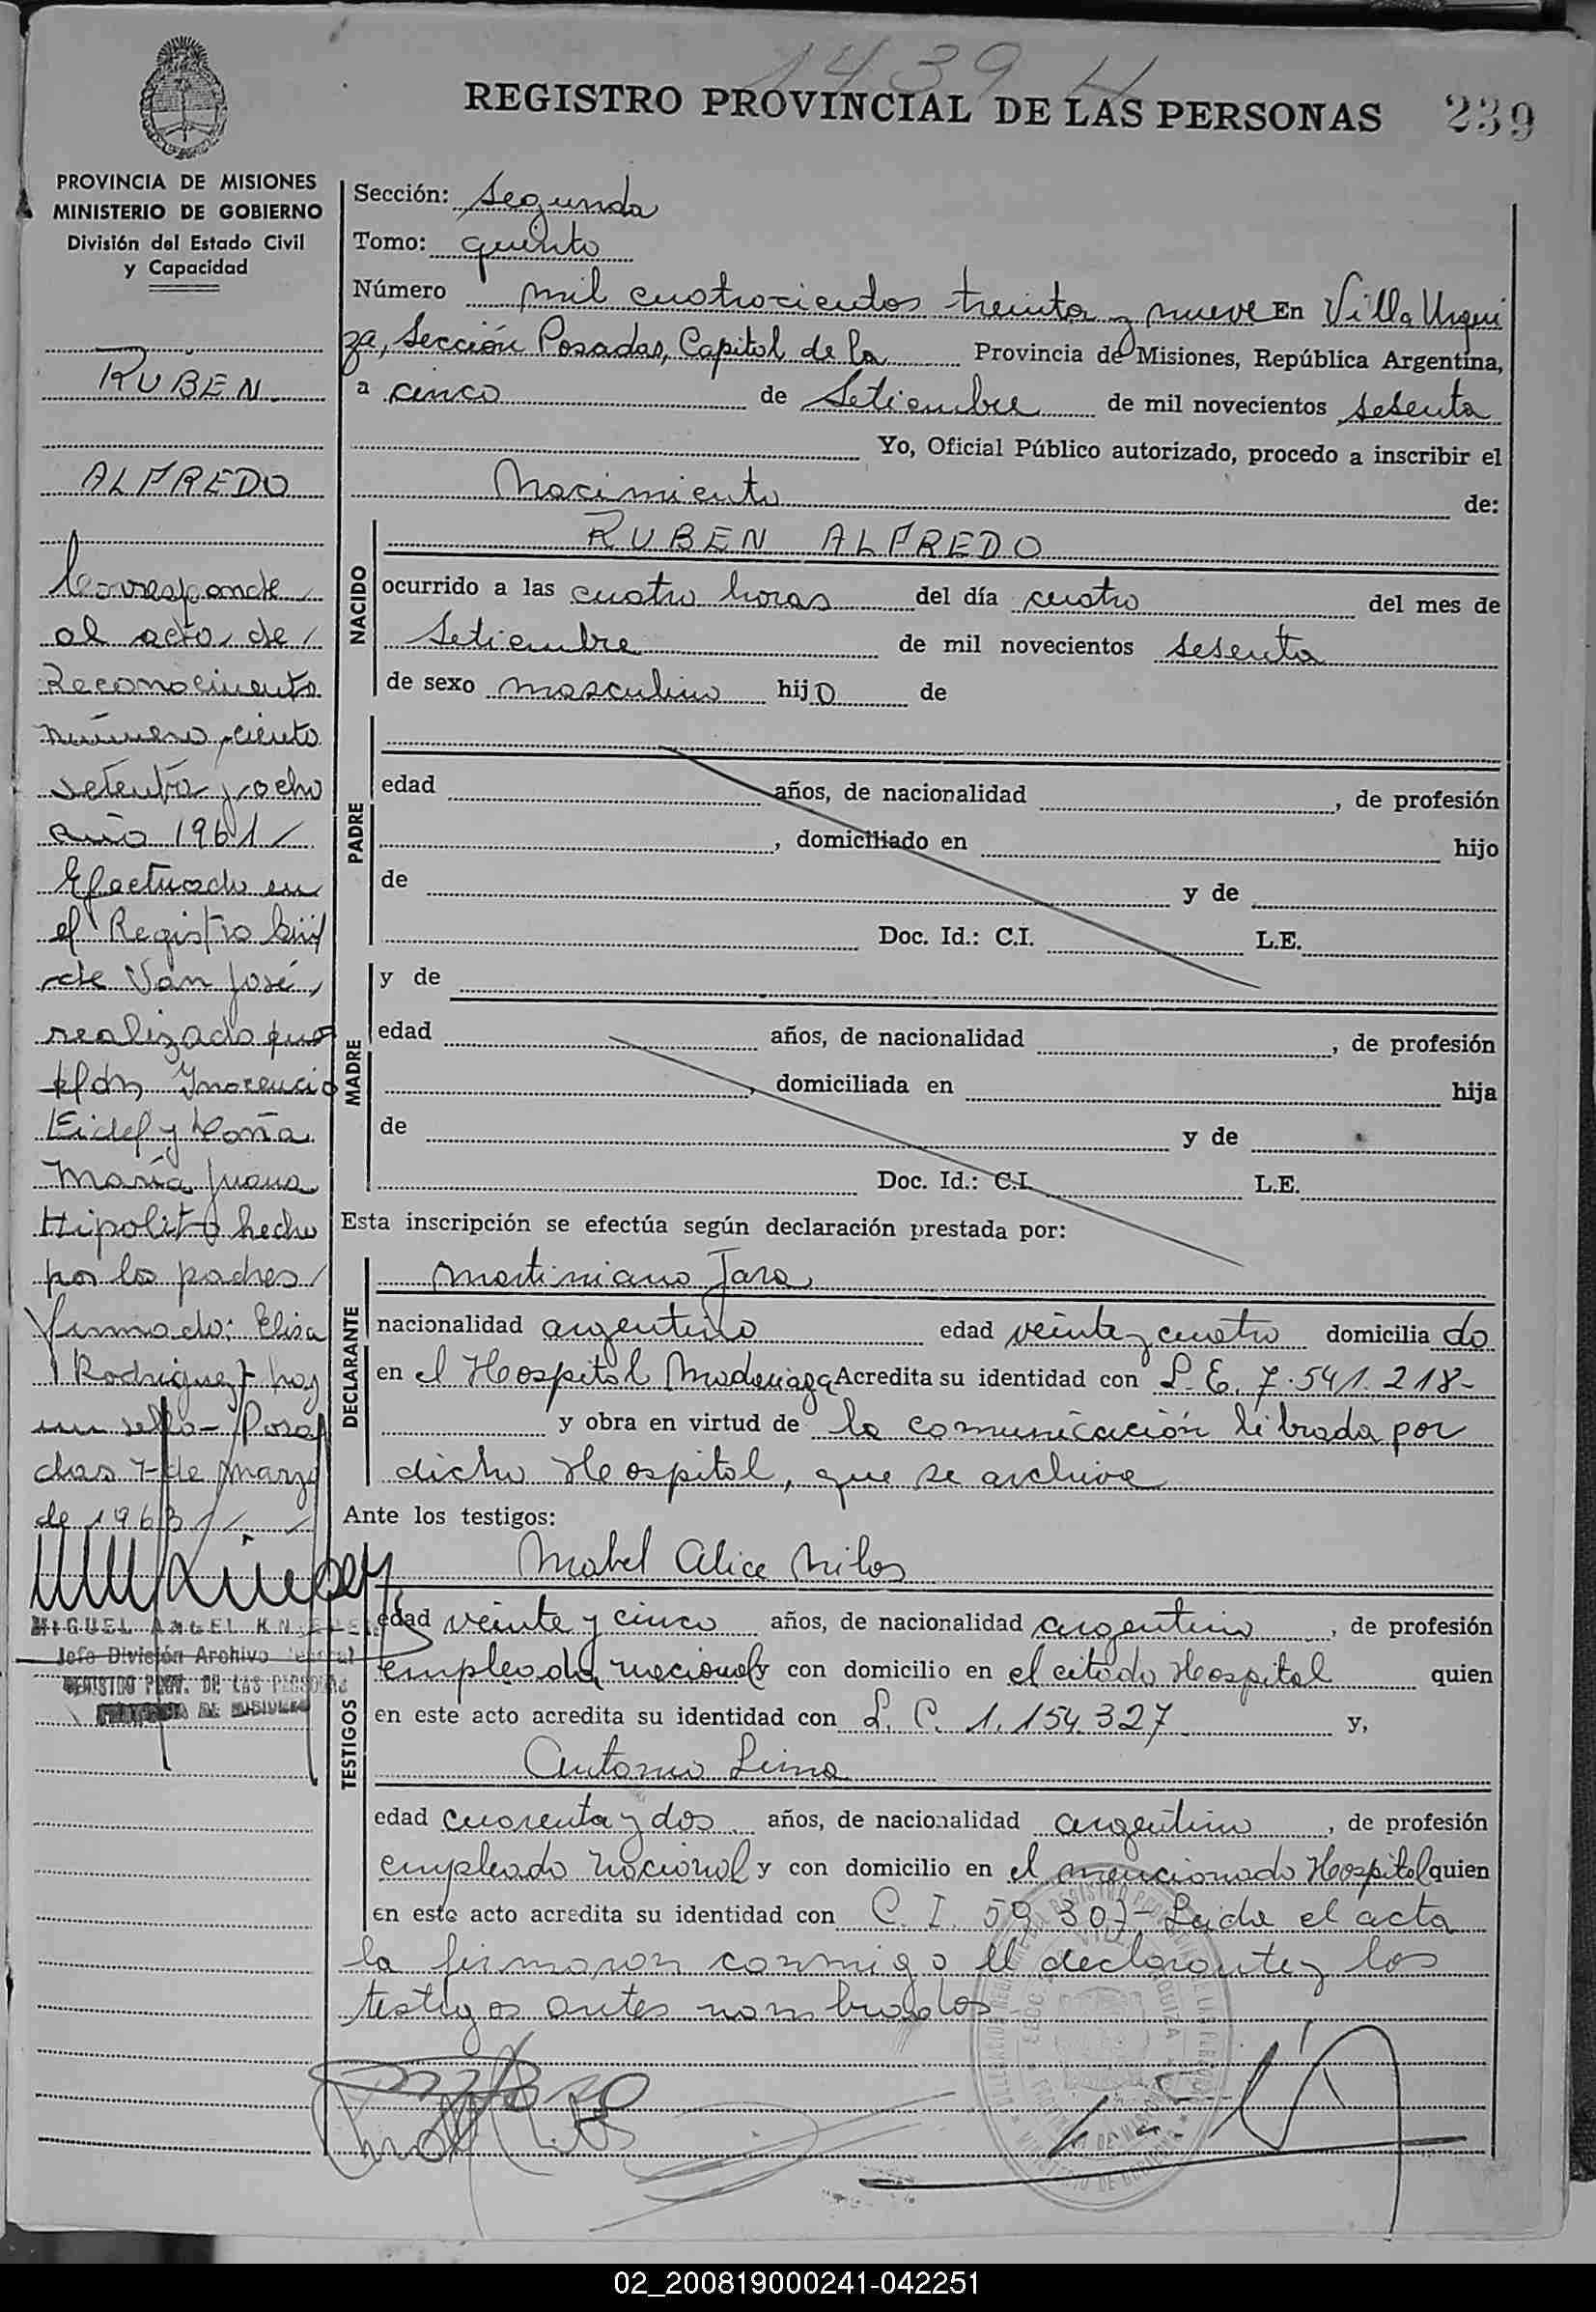 1439 H
REGISTRO PROVINCIAL DE LAS PERSONAS 239
PROVINCIA DE MISIONES
MINISTERIO DE GOBIERNO
División del Estado Civil
y Capacidad
RUBEN
ALFREDO
Corresponde
al acta de
Reconocimiento
número ciento
setenta y ocho
año 1961
Efectuado en
el Registro Civil
de San José,
realizado por
Inocencio
y Doña
María Juana
Hipolito hecho
por los padres
firmado: Elisa
Rodriguez hay
un sello - Posa
das 7 de marzo
de 1963
MIGUEL ANGEL
Jefe División Archivo
REGISTRO PROV. DE LAS PERSONAS
DE MISIONES
Sección: Segunda
Tomo: quinto
Número mil cuatrocientos treinta y nueve En Villa Urqui
za, Sección Posadas, Capital de la Provincia de Misiones, República Argentina,
a cinco de Setiembre de mil novecientos sesenta
Yo, Oficial Público autorizado, procedo a inscribir el
Nacimiento de:
NACIDO
RUBEN ALFREDO
ocurrido a las cuatro horas del día cuatro del mes de
Setiembre de mil novecientos sesenta
de sexo masculino hijo de
PADRE
edad años, de nacionalidad , de profesión
, domiciliado en hijo
de y de
Doc. Id.: C.I. L.E.
MADRE
y de
edad años, de nacionalidad , de profesión
, domiciliada en hija
de y de
Doc. Id.: C.I. L.E.
Esta inscripción se efectúa según declaración prestada por:
DECLARANTE
Martiniano Jara
nacionalidad argentino edad veinte y cuatro domicilia do
en el Hospital Madariaga Acredita su identidad con L. E. 7.541.218-
y obra en virtud de la comunicación librada por
dicho Hospital, que se archiva
Ante los testigos:
TESTIGOS
Mabel Alice Milos
edad veinte y cinco años, de nacionalidad argentina, de profesión
empleada nacional y con domicilio en el citado Hospital quien
en este acto acredita su identidad con L. C. 1.154.327 y,
Antonio Lima
edad cuarenta y dos años, de nacionalidad argentino, de profesión
empleado nacional y con domicilio en el mencionado Hospital quien
en este acto acredita su identidad con C. I. 59.307- Leida el acta
la firmaron conmigo el declarante y los
testigos antes nombrados
02_200819000241-042251